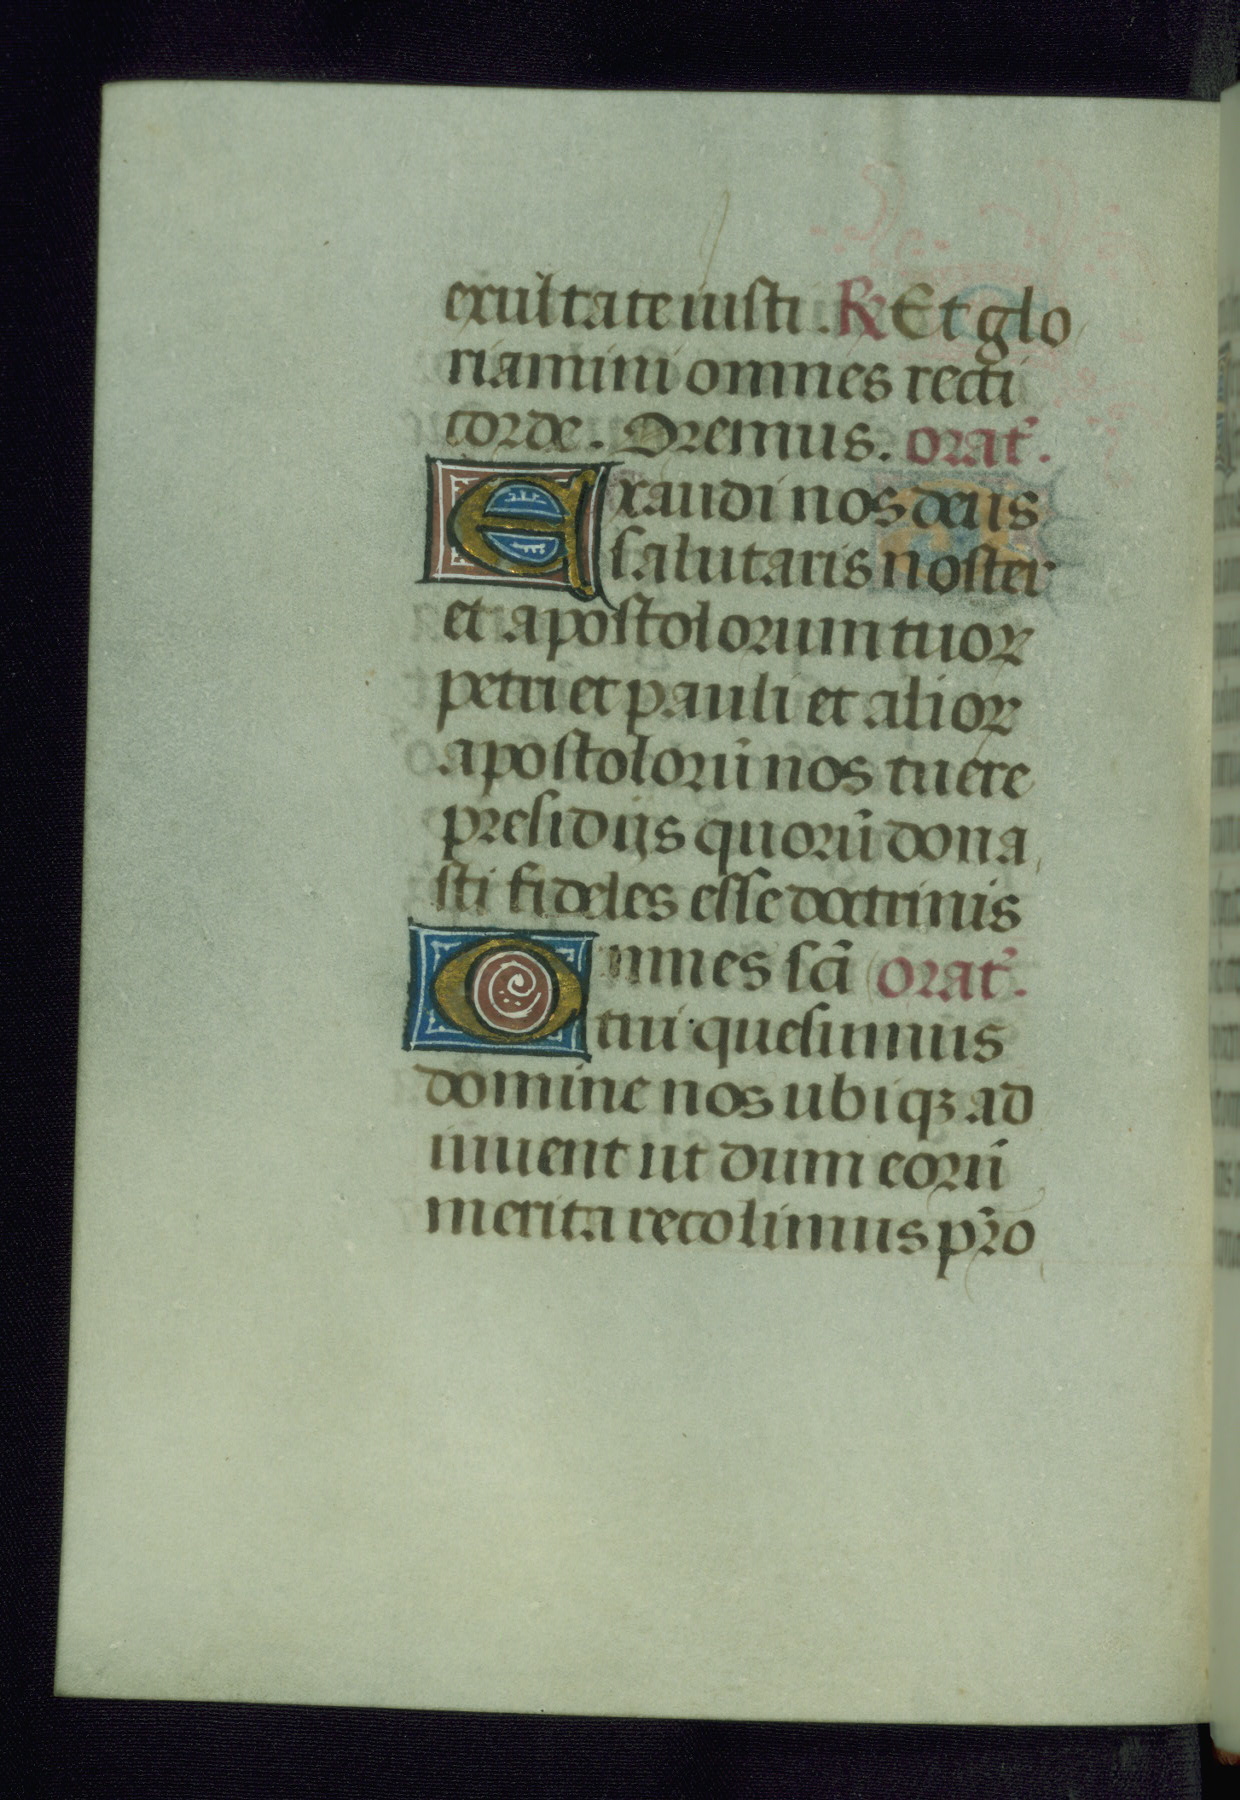 exultate iusti. ℟ Et glo
riamini omnes recti
corde. Oremus. orat̃.
Exaudi nos deus
salutaris noster
et apostolorum tuoꝝ
petri et pauli et alioꝝ
apostolorũ nos tuere
presidijs quorũ dona
sti fideles esse doctrinis
Omnes sc̃i orat̃.
tui quesumus
domine nos ubiqꝫ ad
iuuent ut dum eorũ
merita recolimus pr̃o